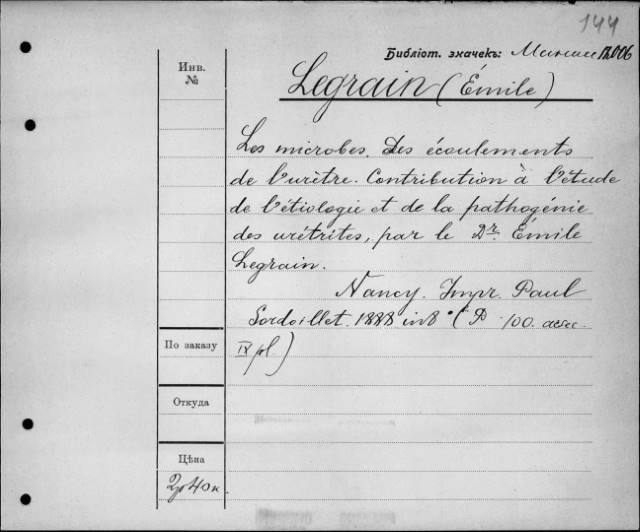 144
Библіот. значекъ: 17.006
Инв.
№
Legrain (Émile)
Les microbes. Des écoulements
de l'urètre. Contribution à l'étude
de l'étiologie et de la pathogénie
des urétrites, par le Dr. Émile
Legrain.
Nancy. Impr. Paul
Sordoillet. 1888 in 8° (P 100. avec
По заказу
IX pl.)
Откуда
Цѣна
2р 40к.